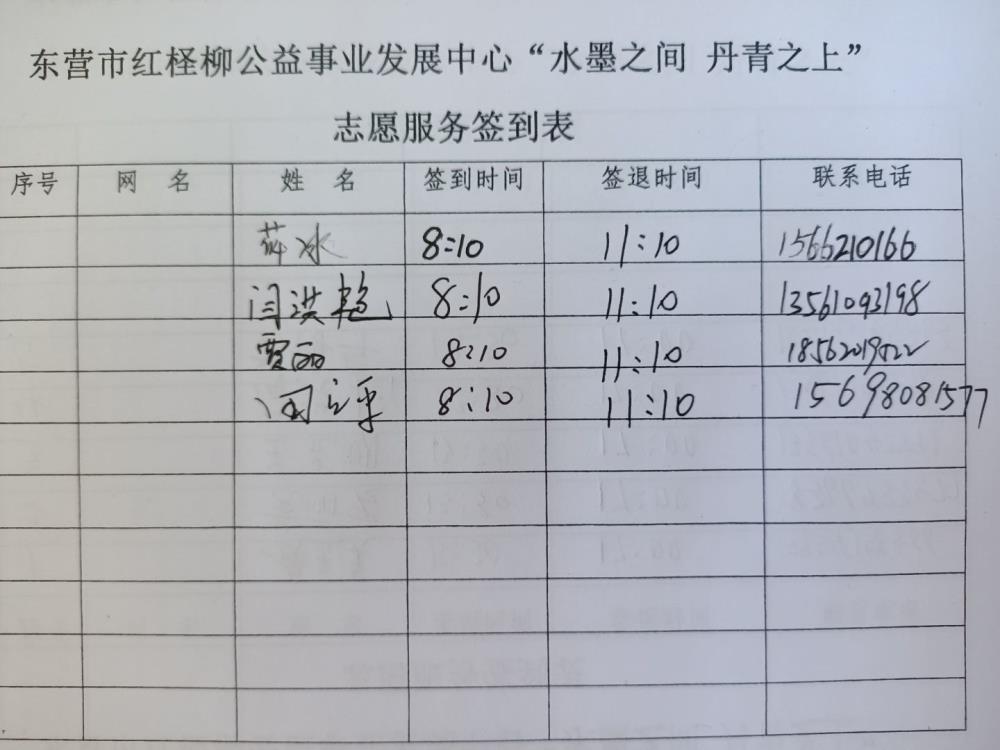 东营市红柽柳公益事业发展中心“水墨之间 丹青之上”
志愿服务签到表
序号 网 名 姓 名 签到时间 签退时间 联系电话
冰 8:10 11:10 1566210166
闫洪艳 8:10 11:10 13561093198
贾丽 8:10 11:10 18562019522
闫立平 8:10 11:10 15698081577